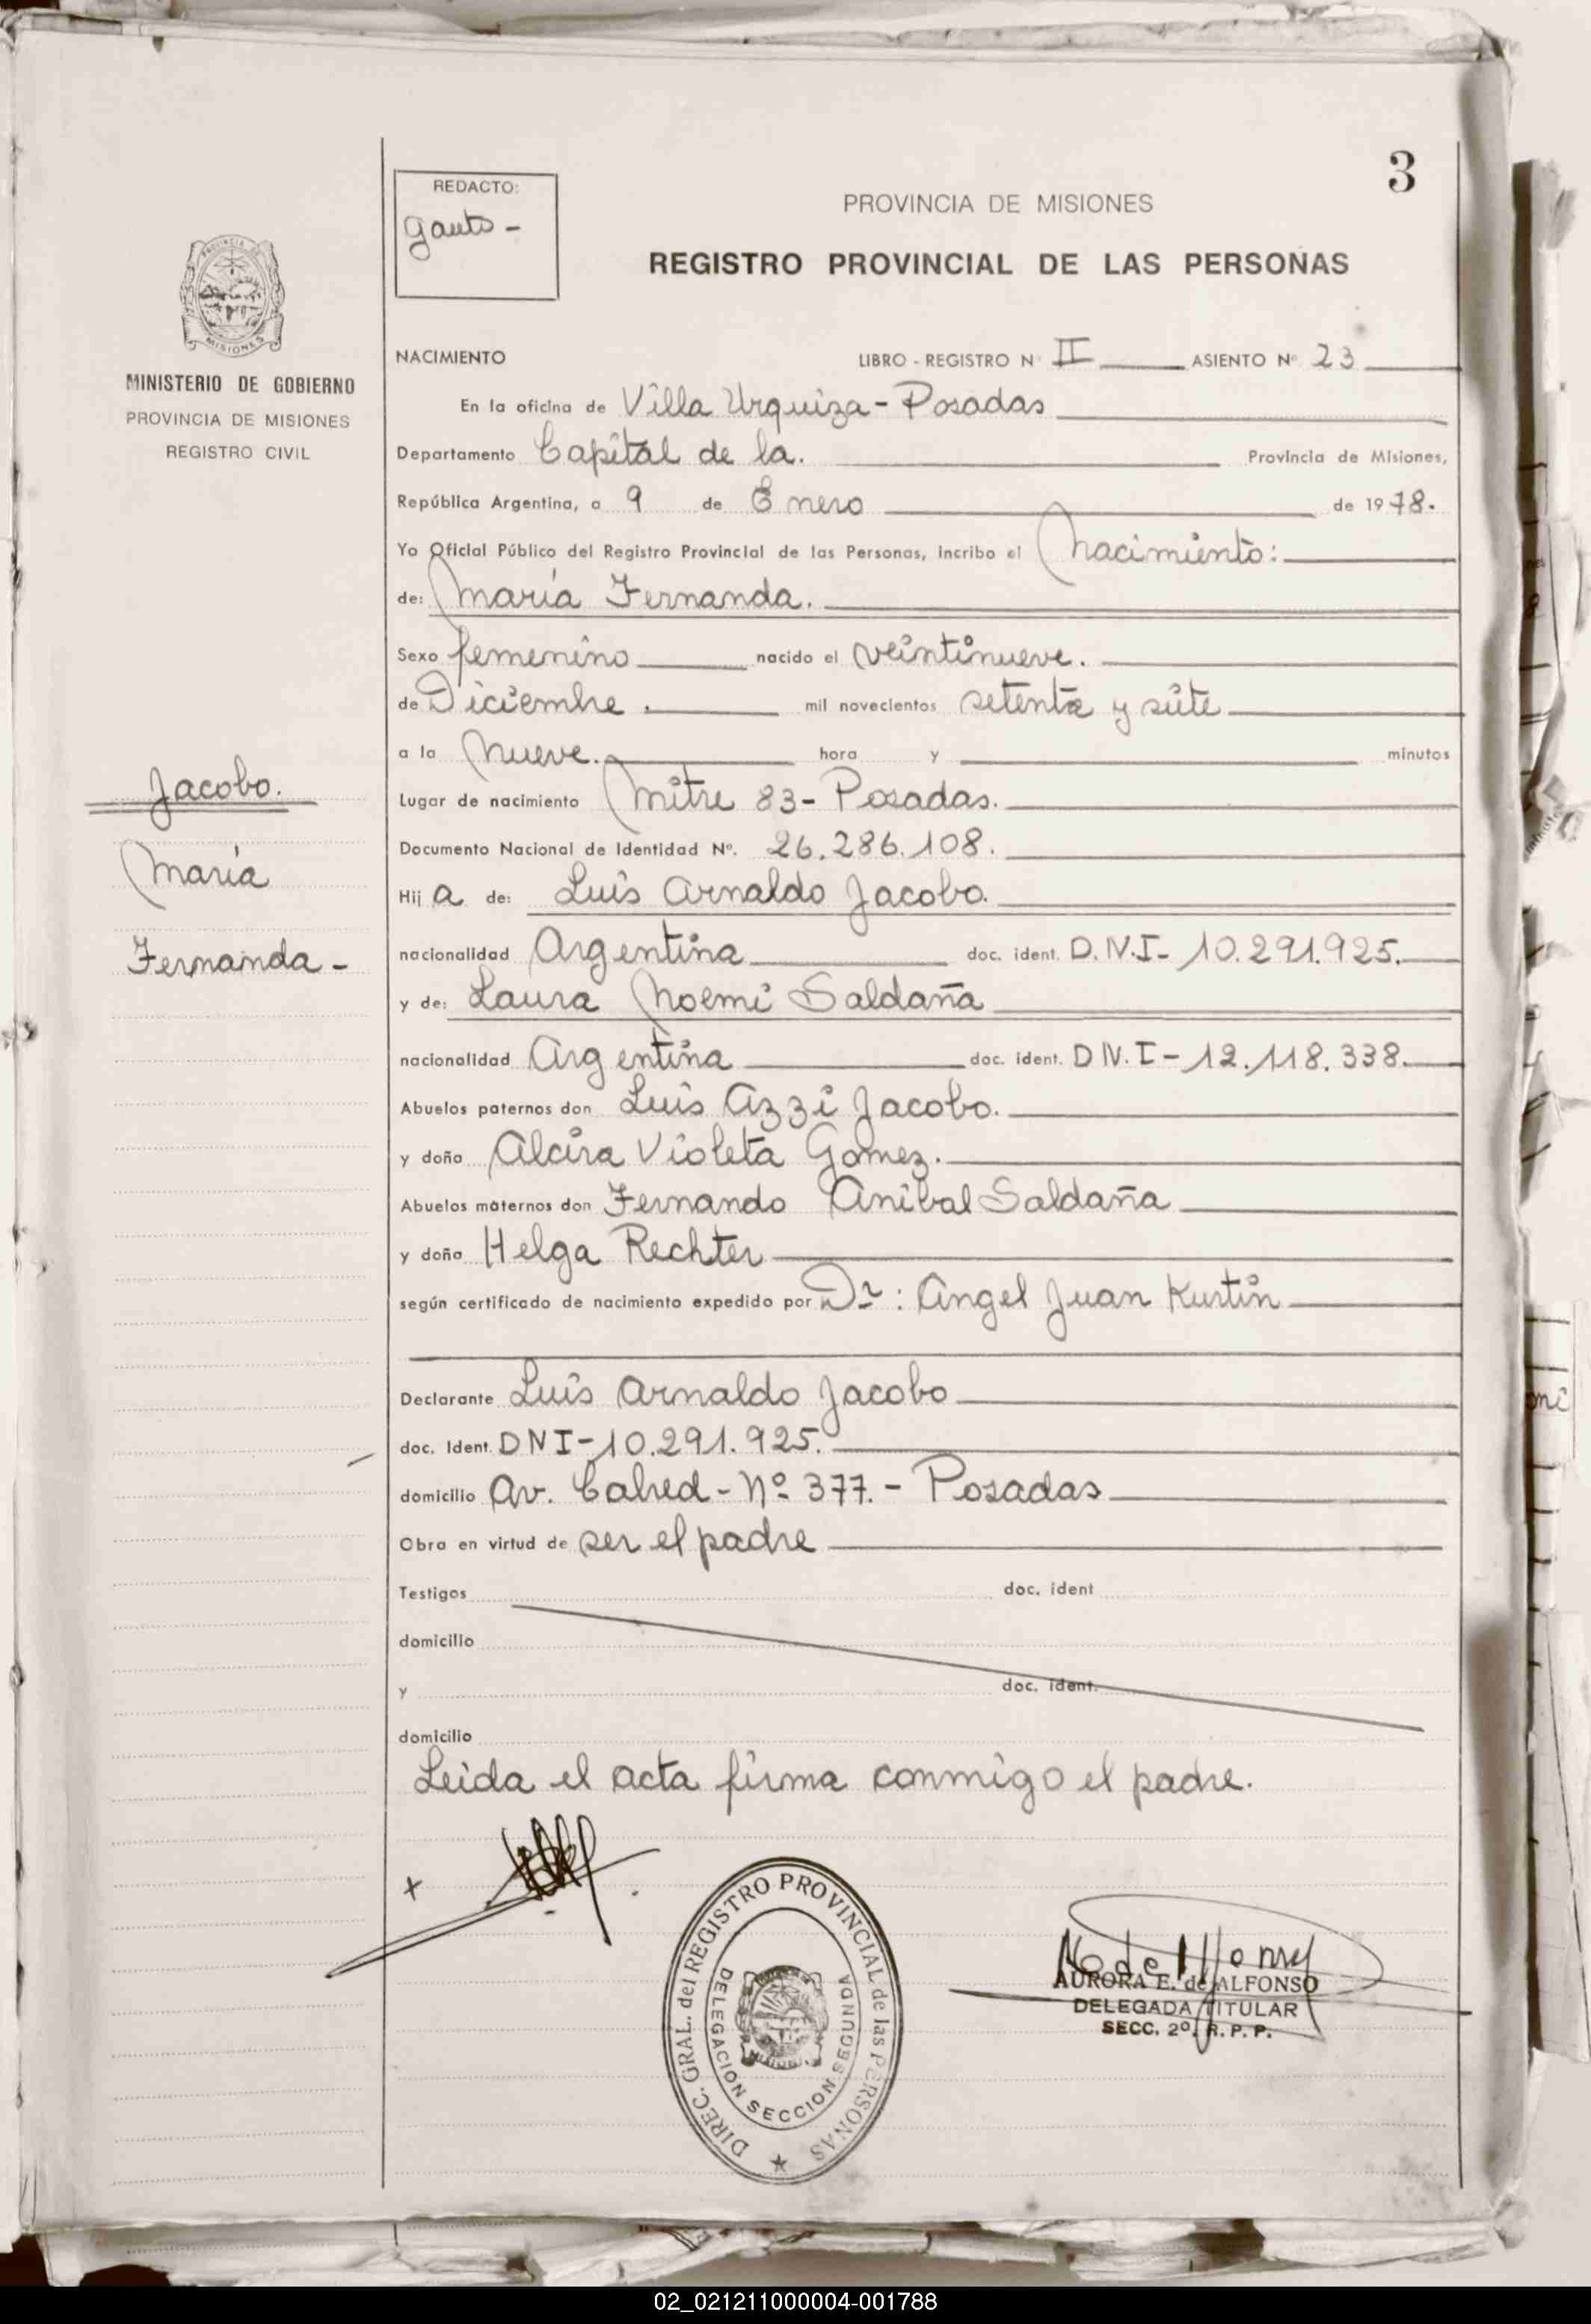 3
REDACTO:
Gauto -
PROVINCIA DE MISIONES
REGISTRO PROVINCIAL DE LAS PERSONAS
PROVINCIA DE
MISIONES
MINISTERIO DE GOBIERNO
PROVINCIA DE MISIONES
REGISTRO CIVIL
Jacobo.
María
Fernanda -
NACIMIENTO LIBRO - REGISTRO Nº II ASIENTO Nº 23
En la oficina de Villa Urquiza - Posadas
Departamento Capital de la. Provincia de Misiones,
República Argentina, a 9 de Enero de 1978.
Yo Oficial Público del Registro Provincial de las Personas, incribo el Nacimiento:
de: María Fernanda.
Sexo femenino nacido el veintinueve.
de Diciembre. mil novecientos setenta y siete
a la Nueve. hora y minutos
Lugar de nacimiento Mitre 83 - Posadas.
Documento Nacional de Identidad Nº. 26.286.108.
Hij a de: Luis Arnaldo Jacobo.
nacionalidad Argentina doc. ident. D.N.I - 10.291.925.
y de: Laura Noemi Saldaña
nacionalidad Argentina doc. ident. DN.I - 12.118.338.
Abuelos paternos don Luis Azzi Jacobo.
y doña Alcira Violeta Gomez.
Abuelos maternos don Fernando Anibal Saldaña
y doña Helga Rechter
según certificado de nacimiento expedido por Dr: Angel Juan Kurtin
Declarante Luis Arnaldo Jacobo
doc. Ident. DNI - 10.291.925.
domicilio Av. Cabred - Nº 377. - Posadas
Obra en virtud de ser el padre
Testigos doc. ident
domicilio
y doc. ident.
domicilio
Leida el acta firma conmigo el padre.
x
DIREC. GRAL. del REGISTRO PROVINCIAL de las PERSONAS
DELEGACION SECCION SEGUNDA
AURORA E. de ALFONSO
DELEGADA TITULAR
SECC. 2º. R. P. P.
02_021211000004-001788